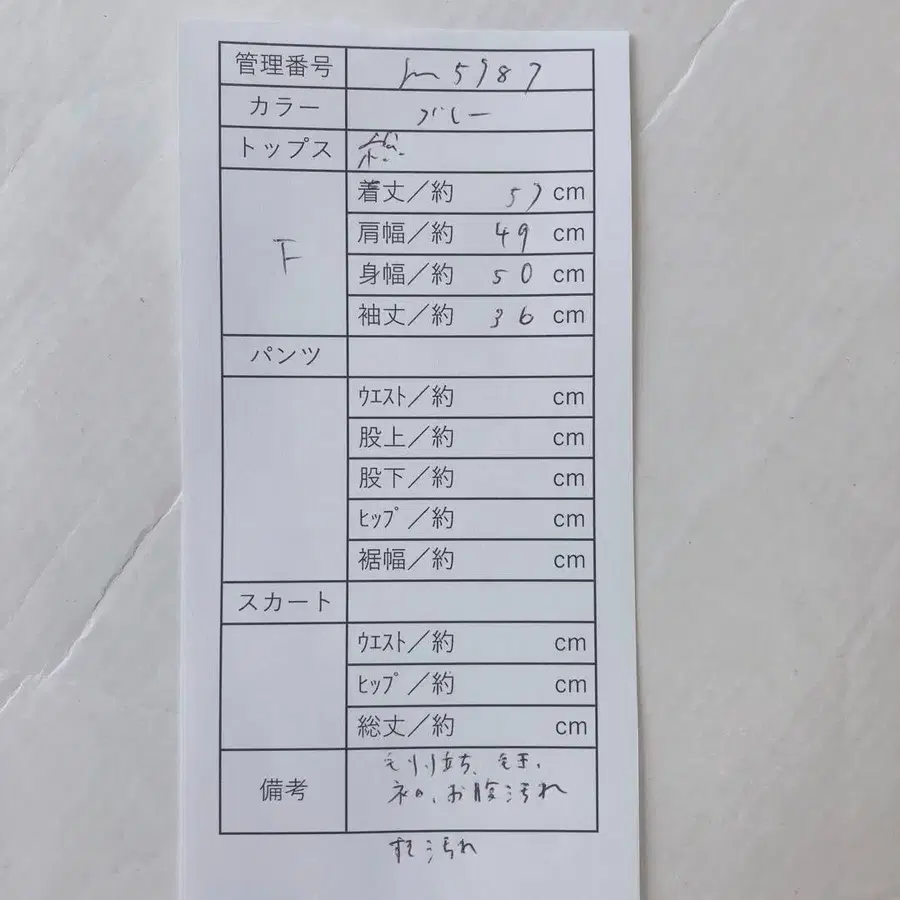 管理番号 m5987
カラー ブルー
トップス
着丈／約 57 cm
F 肩幅／約 49 cm
身幅／約 50 cm
袖丈／約 36 cm
パンツ
ｳｴｽﾄ／約 cm
股上／約 cm
股下／約 cm
ﾋｯﾌﾟ／約 cm
裾幅／約 cm
スカート
ｳｴｽﾄ／約 cm
ﾋｯﾌﾟ／約 cm
総丈／約 cm
備考
お腹汚れ
汚れ